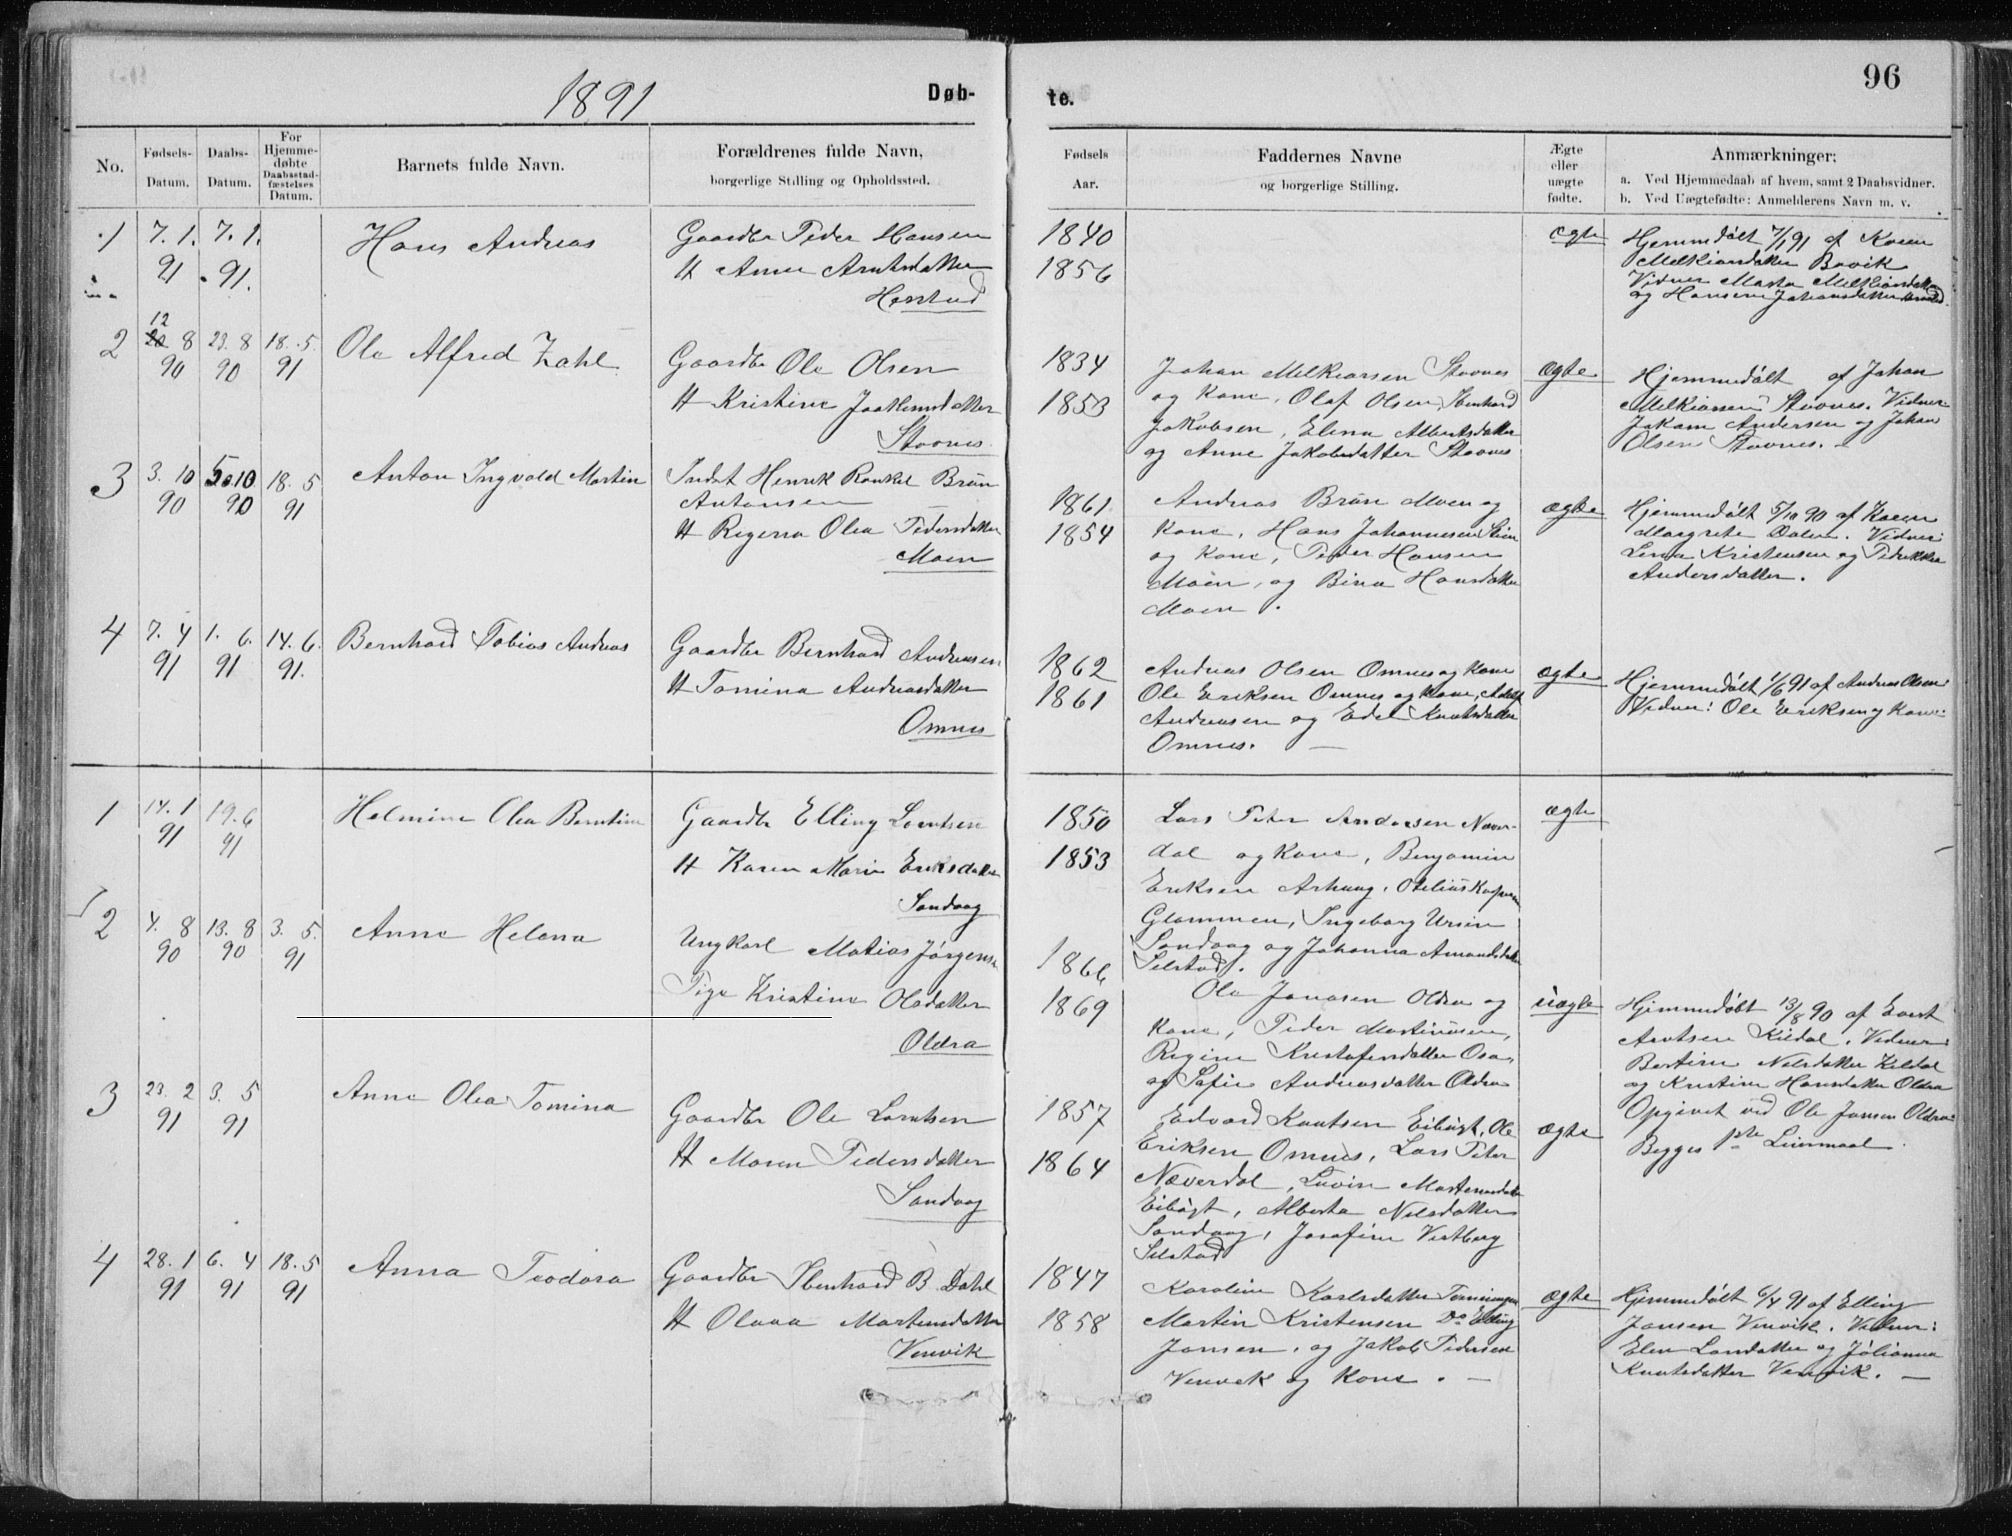 96
1891
Døb-
te.
No.
Fødsels-
Datum.
Daabs-
Datum.
For
Hjemme-
døbte
Daabsstad-
fæstelses
Datum.
Barnets fulde Navn.
Forældrenes fulde Navn,
borgerlige Stilling og Opholdssted.
Fødsels
Aar.
Faddernes Navne
og borgerlige Stilling.
Ægte
eller
uægte
fødte.
Anmærkninger;
a. Ved Hjemmedaab af hvem, samt 2 Daabsvidner.
b. Ved Uægtefødte: Anmelderens Navn m. v.
1
7.1. 7.1.
91 91.
Hans Andreas
Gaardbr Peder Hansen
H Anne Arntsdatter
1840
1856
ægte
Hjemmedøbt 7/1 91 af
Melkiorsdatter Bovik
Vidner Marta Melkiorsdatter
og Hansine Johansdatter
2
12
20 8 23. 8 18. 5.
90 90 91
Ole Alfred Zahl
Gaardbr Ole Olsen
H Kristine
Stovnes
1834
1853
Johan Melkiorsen Stovnes
og Kone, Olaf Olsen, Ibenhard
Jakobsen, Elena Albertsdatter
og Anne Jakobsdatter Stovnes
ægte
Hjemmedøbt af Johan
Melkiorsen Stovnes. Vidner
Andersen og Johan
Olsen Stovnes.
3
3. 10 5. 10 18. 5
90 90 91
Anton Ingvald Martin
Indst Henrik Brun
Antonsen
H Regina Olea Pedersdatter
Moen
1861
1854
Andreas Brun Moen og
Kone, Hans Johannesen
og Kone, Peder Hansen
Moen, og Bina Hansdatter
Moen.
ægte
Hjemmedøbt 5/10 90 af Karen
Margrete. Vidner:
Lena Kristensen og Petrikke
Andersdatter.
4
7. 4 1. 6. 14. 6.
91 91 91.
Bernhard Tobias Andreas
Gaardbr Bernhard Andreasen
H Tomina Andreasdatter
Omnes
1862
1861
Andreas Olsen Omnes og Kone
Ole Eriksen Omnes og Kone, Adolf
Andreasen og Edel Knutsdatter
Omnes. —
ægte
Hjemmedøbt 1/6 91 af Andreas Olsen
Vidner: Ole Eriksen og Kone.
1
14. 1 19. 6
91 91
Helmine Olea Berntine
Gaardbr Elling Lorntsen
H Karen Marie Eriksdatter
Sandaag
1850
1853
Lars Peter Andersen Næver-
dal og Kone, Benjamin
Eriksen Arhaug, Otelius
Glommen, Ingeborg Ursin
Sandaag og Johanna Amundsdatter
Selstad.
ægte
2
4. 8 13. 8 3. 5.
90 90 91
Anne Helena
Ungkarl Matias Jørgensen
Pige Kristine Olsdatter
Oldra
1866
1869
Ole Jonasen Oldra og
Kone, Peder Martinusen,
Regine Kristofersdatter
og Sofie Andreasdatter Oldra
uægte
Hjemmedøbt 13/8 90 af Evert
Arntsen Kildal. Vidner
Bertine Nilsdatter Kildal
og Kristine Hansdatter Oldra
Opgivet ved Ole Jonsen Oldra:
Begges 1ste Leiermaal
3
23. 2 3. 5
91 91
Anne Olea Tomina
Gaardbr Ole Lorntsen
H Maren Pedersdatter
Sandaag
1857
1864
Edvard Knutsen Eibugt, Ole
Eriksen Omnes, Lars Peter
Næverdal, Lovise Mortensdatter
Eibugt, Alberta Nilsdatter
Sandaag, Josefine Vestberg
Selstad
ægte
4
28. 1 6. 4 18. 5
91 91 91
Anna Teodora
Gaardbr Ibenhard B. Dahl
H Olava Mortensdatter
Venvik
1847
1858
Karoline Karlsdatter
Martin Kristensen Do Elling
Jonsen, og Jakob Pedersen
Venvik og Kone. —
ægte
Hjemmedøbt 6/4 91 af Elling
Jonsen Venvik. Vidner:
Elen Larsdatter og Julianna
Knutsdatter Venvik. —